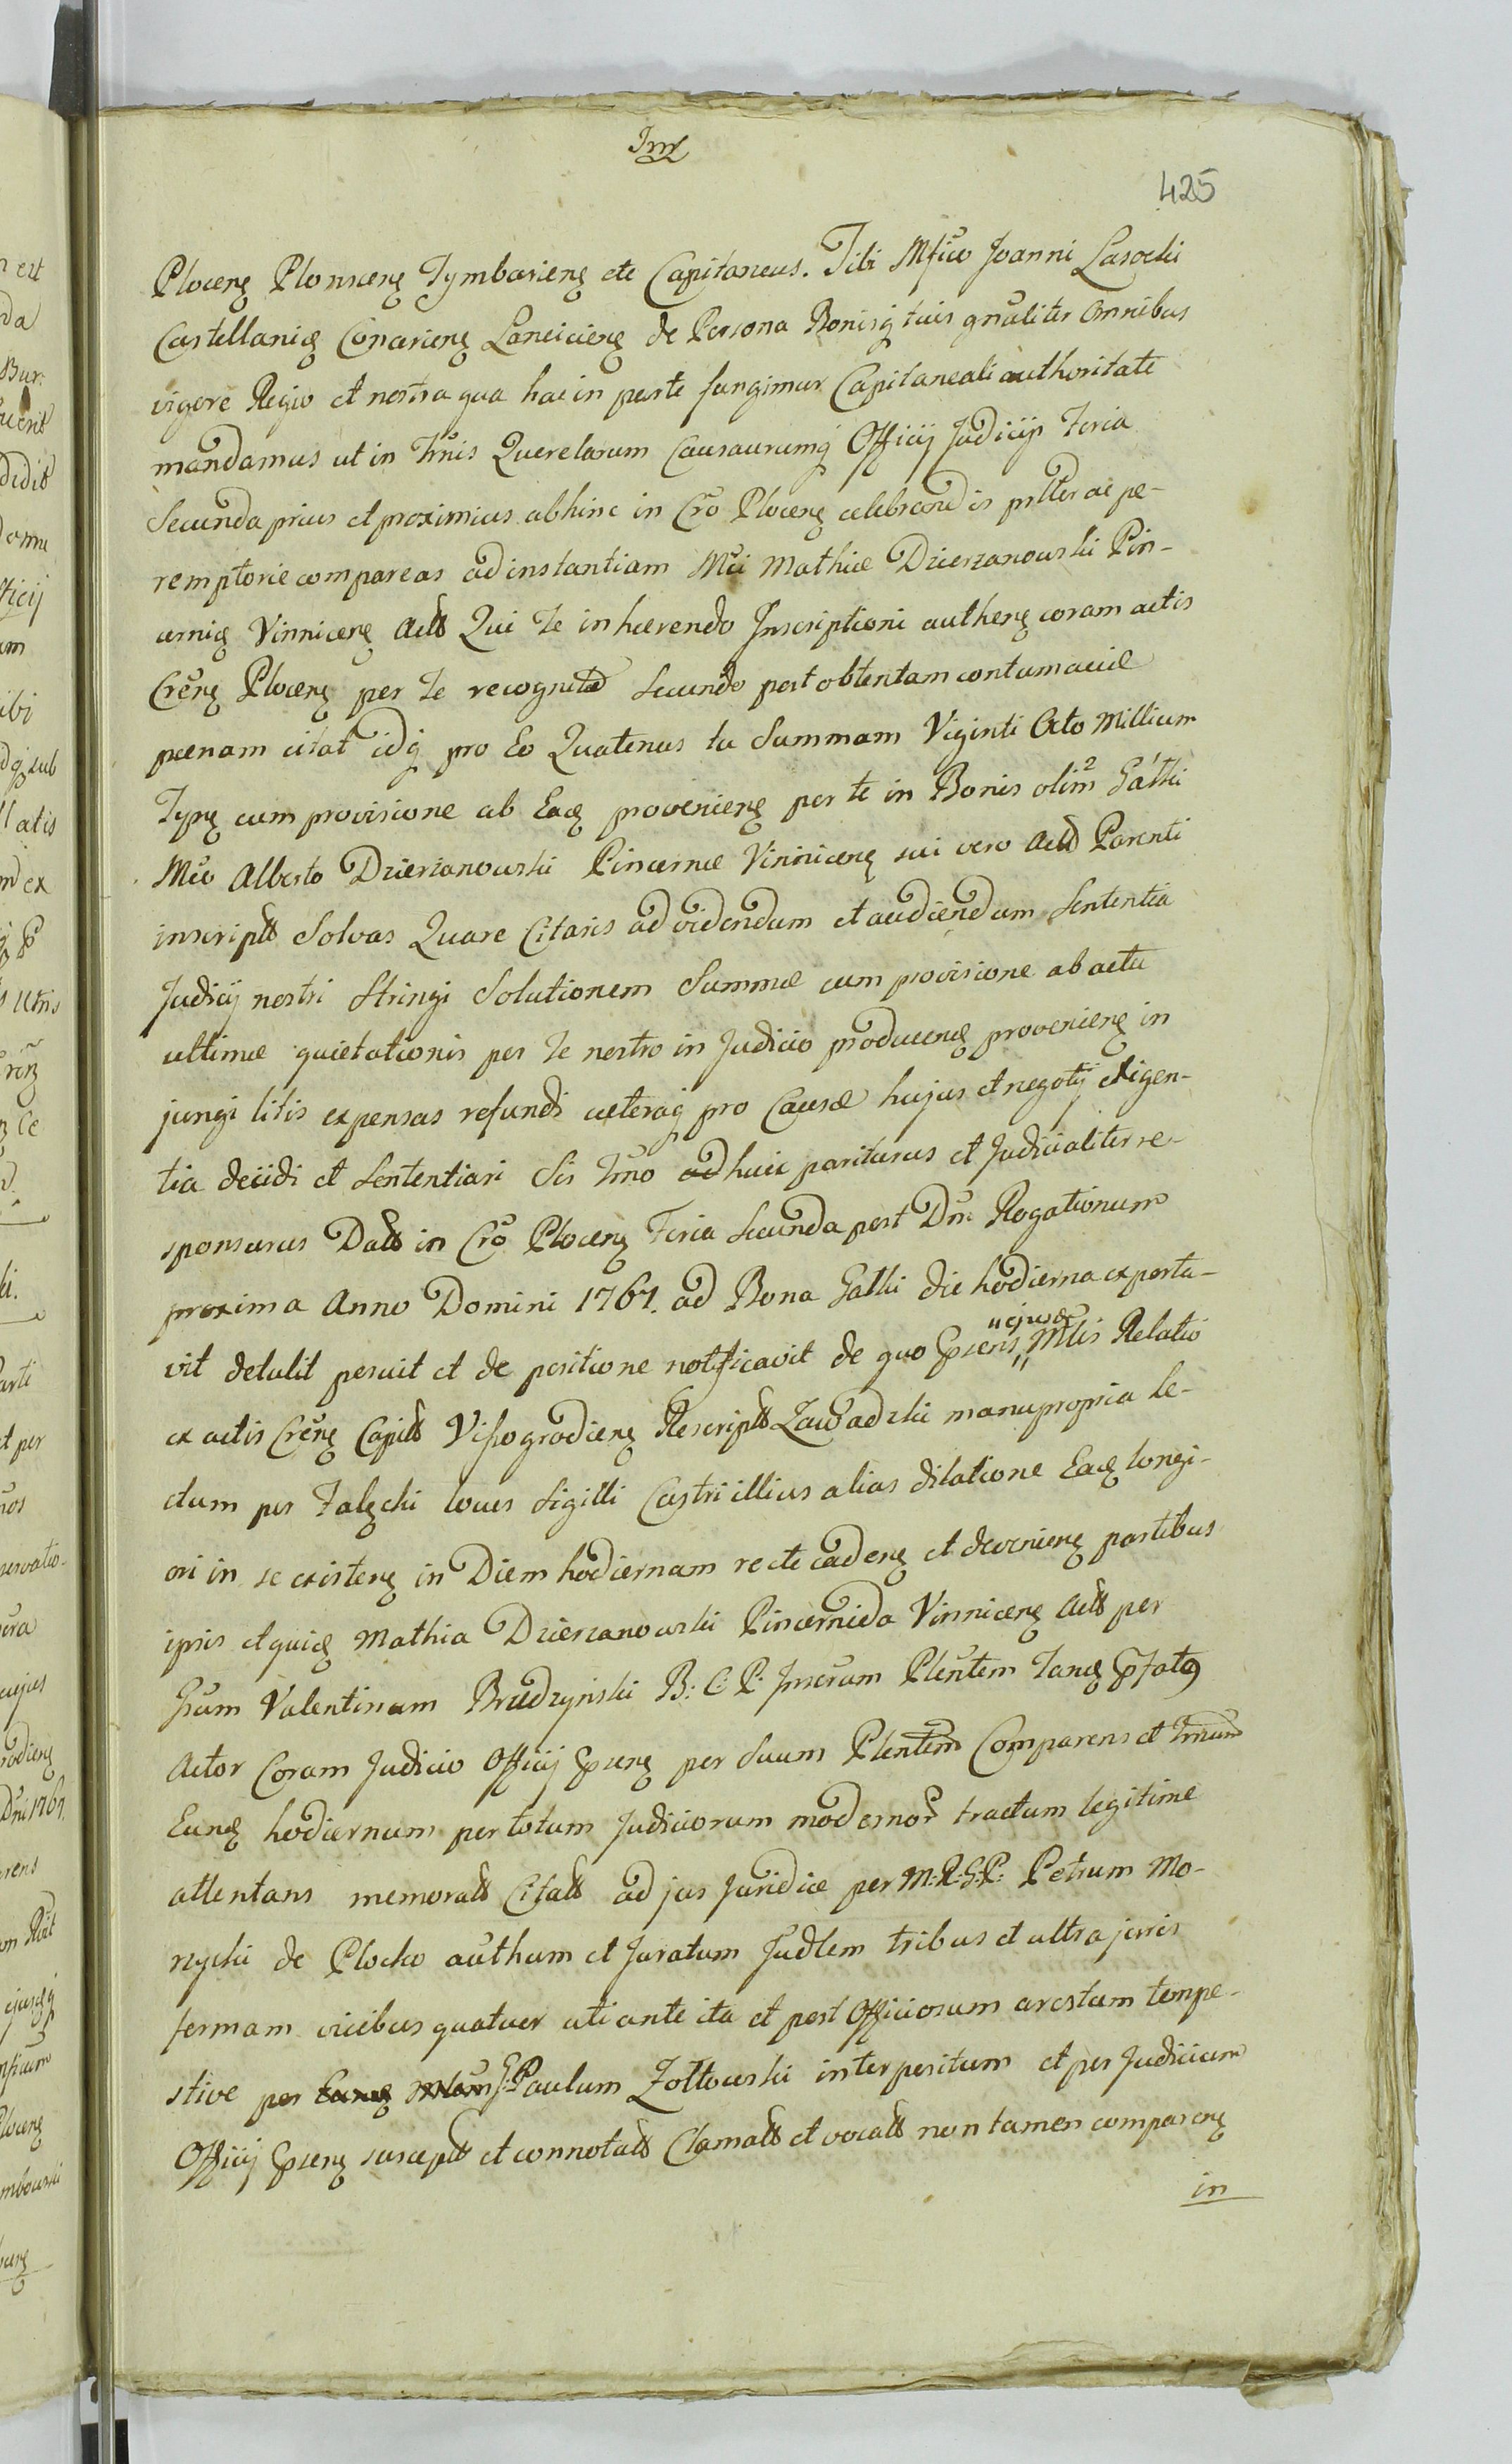 425
Plocen Plonscen Tymbarien etc Capitaneus. Tibi Mfico Joanni Lasocki
Castellanid Conarien Lancicien de Persona Bonisq tuis gnaliter omnibus
vigore Regio et nostra qua hac in parte fungimur Capitaneali authoritate
mandamus ut in Tmis Querelarum Causarumq Officij Judicijp Feria
Secunda prius et proximius abhinc in Cro Plocen celebrandis pltter ac pe-
remptorie compareas ad instantiam Mci Mathiæ Dzierzanowski Pin-
cernid Vinnicen Actt Qui Te inhærendo Inscriptioni authen coram actis
Cren Plocen per Te recognitæ Secundo post obtentam contumaciæ
pœnam citat idq pro Eo Quatenus tu Summam Viginti Octo Millium
Typ cum provisione ab Ead provenien per te in Bonis olim 2 Gátki
Mco Alberto Dzierzanowski Pincernæ Vinnicen sui vero Actt Parenti
inscriptt Solvas Quare Citaris ad videndum et audiendum Sententia
Judicij nostri Stringi Solutionem Summæ cum provisione ab actu
ultimæ quietationis per Te nostro in Judicio producend provenien in
jungi litis expensas refundi cæteraq pro Causæ hujus et negotij exigen-
tia decidi et Sententiari Sis Tmo adhuic pariturus et Judicialiter re-
sponsurus Datt in Cro Plocen Feria Secunda post Dm Rogationum
proxima Anno Domini 1767. ad Bona Gatki die hodierna exporta-
vit detulit posuit et de positione notificavit de quo prens "ejusd" Mtlis Relatio
ex actis Cren Capitt Vissogrodien Rescriptt Zawadzki manu propria le-
ctum per Falęcki locus Sigilli Castri illius alias dilatione Ead longi-
ori in se existen in Diem hodiernam recte caden et devenien partibus
ipsis et quid Mathia Dzierzanowski Pincernida Vinnicen Actt per
Gsum Valentinum Brudzyński B: C: P: Juscrum Plentem Tand pfato
Actor Coram Judicio Officij pren per Suum Plentem Comparens et Tmum
Eund hodiernum per totum Judiciorum modernor tractum legitime
attentans memoratt Citatt ad jus Juridice per M: R: G: P: Petrum Mo-
rzycki de Plocko authum et Juratum Judlem tribus et ultra juris
formam vicibus quatuor uti ante ita et post Officiosum arestum tempe-
stive per G: Paulum Zołtowski interpositum et per Judicium
Officij pren susceptt et connotatt Clamatt et vocatt non tamen comparen
in